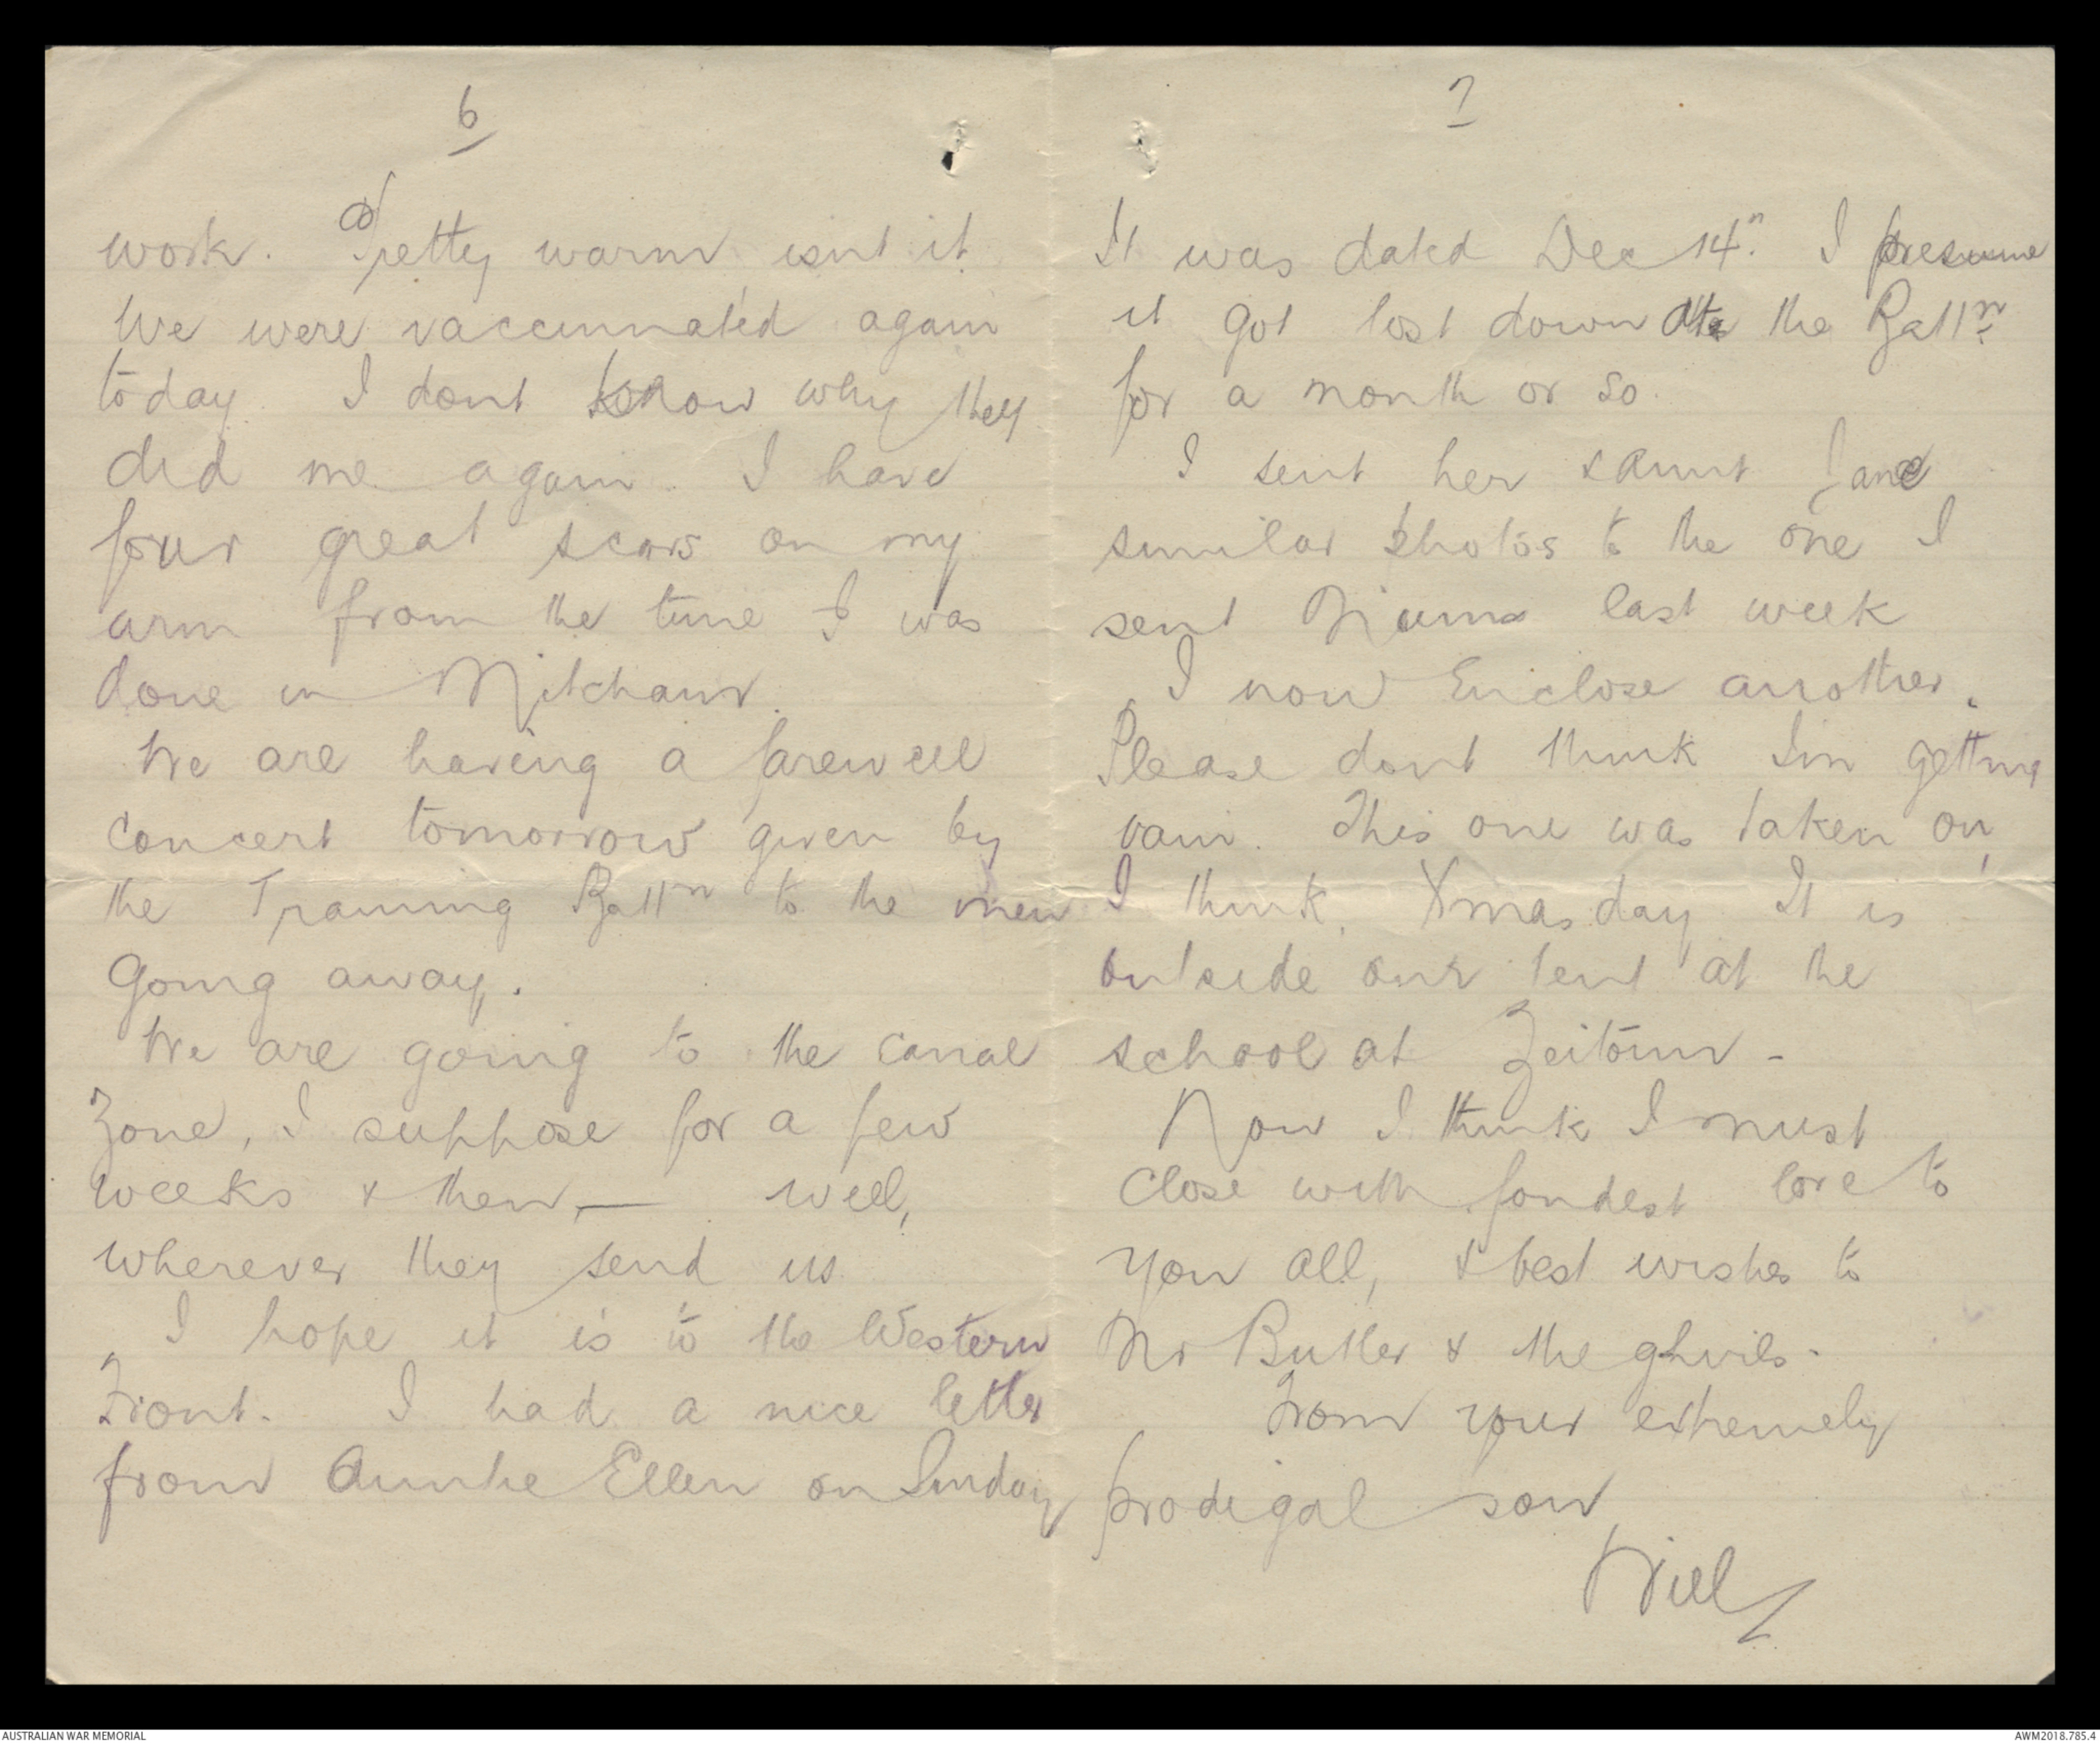 6
work. Pretty warm, isnt it.
We were vaccinnated again
today. I dont know why they
did me again. I have
four great scars on my
arm from the time I was
done in Mitcham.
We are having a farewell
concert tomorrow given by
the Training Battn to the men
going away.
We are going to the Canal
Zone, I suppose for a few
weeks & then, — well,
wherever they send us
I hope it is to the Western
Front. I had a nice letter
from Auntie Ellen on Sunday
7
It was dated Dec 14n. I presume
it got lost down at the Battn.
for a month or so.
I sent her & Aunt Jane
similar photos to the one I
sent Mums last week
I now Enclose another.
Please dont think Im getting
vain. This one was taken on,
I think, Xmas day. It is
outside our tent at the
school at Zeitoun -
Now I think I must
close with fondest love to
you all, & best wishes to
Mr Butler & the
From your extremely
prodigal son
Will
AUSTRALIAN WAR MEMORIAL
AWM2018.785.4